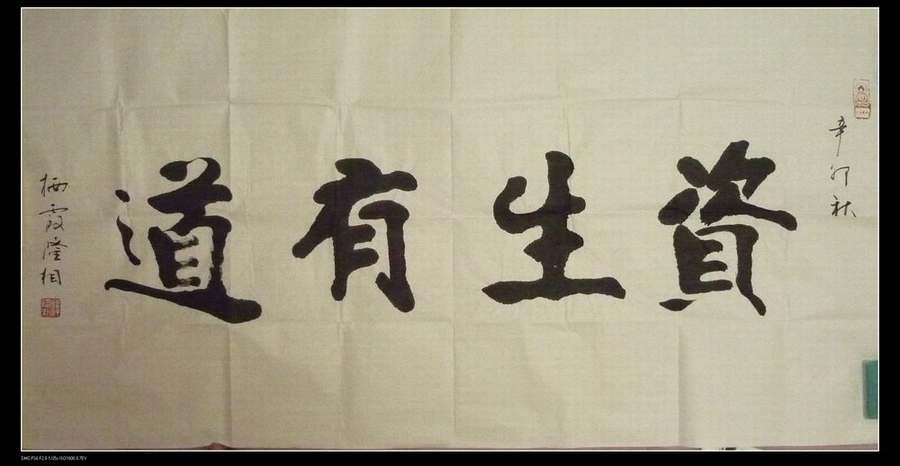 辛卯秋
資生有道
栖霞隆相